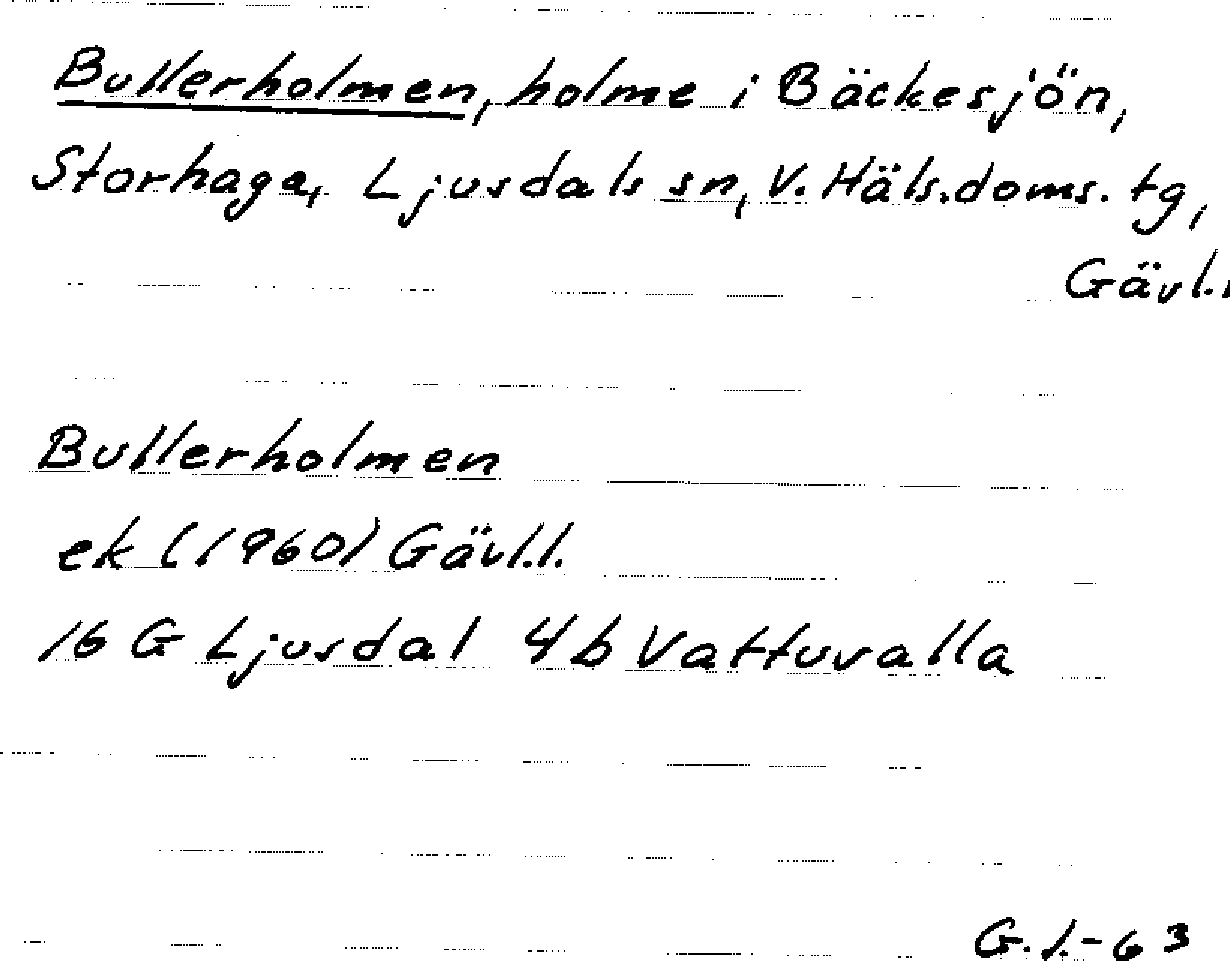 Bullerholmen, holme i Bäckesjön,
Storhaga, Ljusdals sn, V. Häls.doms. tg,
Gävl.l
Bullerholmen
ek (1960) Gävl.l.
16 G Ljusdal 4b Vattuvalla
G.I.-63